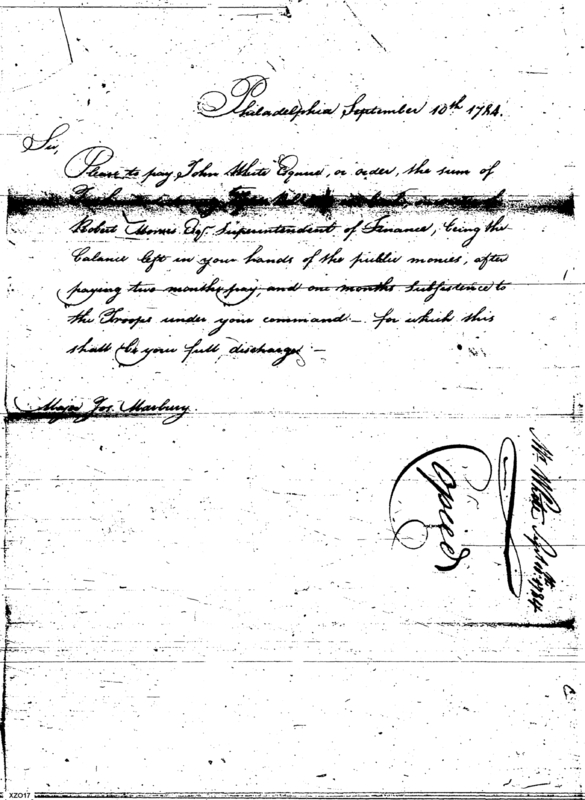 Philadelphia September 10th 1784.
Sir,
Please to pay John White Esquire, or order, the sum of
Robert Morris Esqr. Superintendent of Finance, being the
balance left in your hands of the public monies, after
paying two months pay, and one months Subsistence to
the Troops under your command — for which this
shall be your full discharge —
Major Jos. Marbury.
Copied
Mr. White Sept. 10th 1784
XZO17